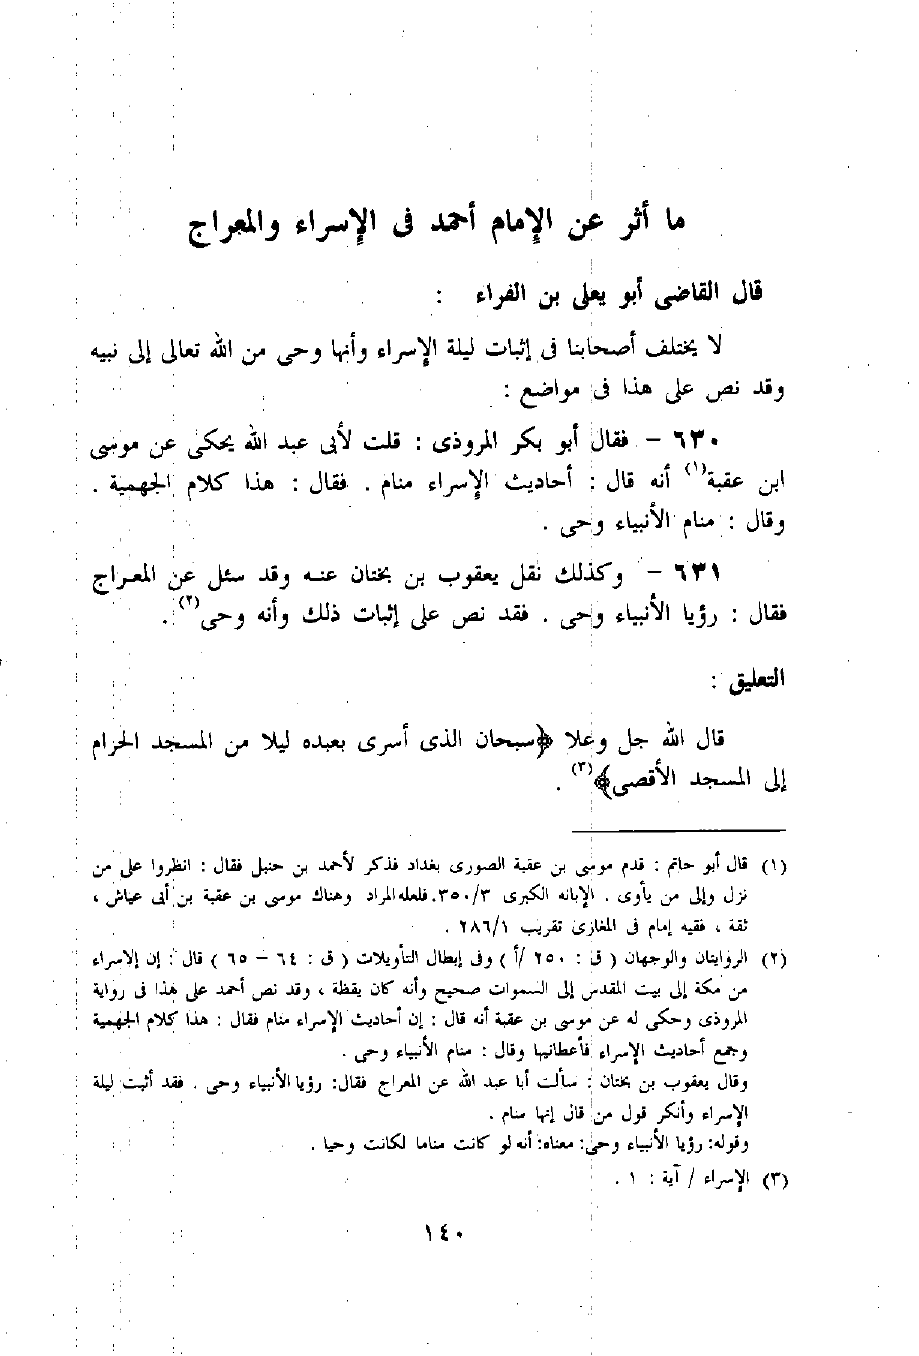 ما أثر عن الإمام أحمد فى الإسراء والمعراج
قال القاضى أبو يعلى بن الفراء :
لا يختلف أصحابنا فى إثبات ليلة الإسراء وأنها وحى من الله تعالى إلى نبيه
وقد نص على هذا فى مواضع :
٦٣٠ – فقال أبو بكر المروذى : قلت لأبى عبد الله يحكى عن موسى
ابن عقبة(١) أنه قال : أحاديث الإسراء منام . فقال : هذا كلام الجهمية .
وقال : منام الأنبياء وحى .
٦٣١ – وكذلك نقل يعقوب بن بختان عنه وقد سئل عن المعراج
فقال : رؤيا الأنبياء وحى . فقد نص على إثبات ذلك وأنه وحى(٢) .
التعليق :
قال الله جل وعلا ﴿سبحان الذى أسرى بعبده ليلا من المسجد الحرام
إلى المسجد الأقصى﴾(٣) .
(١) قال أبو حاتم : قدم موسى بن عقبة الصورى بغداد فذكر لأحمد بن حنبل فقال : انظروا على من
نزل وإلى من يأوى . الإبانه الكبرى ٣٥٠/٣. فلعله المراد وهناك موسى بن عقبة بن أبى عياش ،
ثقة ، فقيه إمام فى المغازى تقريب ٢٨٦/١ .
(٢) الروايتان والوجهان ( ق : ٢٥٠ /أ ) وفى إبطال التأويلات ( ق : ٦٤ – ٦٥ ) قال : إن الاسراء
من مكة إلى بيت المقدس إلى السموات صحيح وأنه كان يقظة ، وقد نص أحمد على هذا فى رواية
المروذى وحكى له عن موسى بن عقبة أنه قال : إن أحاديث الإسراء منام فقال : هذا كلام الجهمية
وجمع أحاديث الإسراء فأعطانيها وقال : منام الأنبياء وحى .
وقال يعقوب بن بختان : سألت أبا عبد الله عن المعراج فقال: رؤيا الأنبياء وحى . فقد أثبت ليلة
الإسراء وأنكر قول من قال إنها منام .
وقوله: رؤيا الأنبياء وحى: معناه: أنه لو كانت مناما لكانت وحيا .
(٣) الإسراء / آية : ١ .
١٤٠